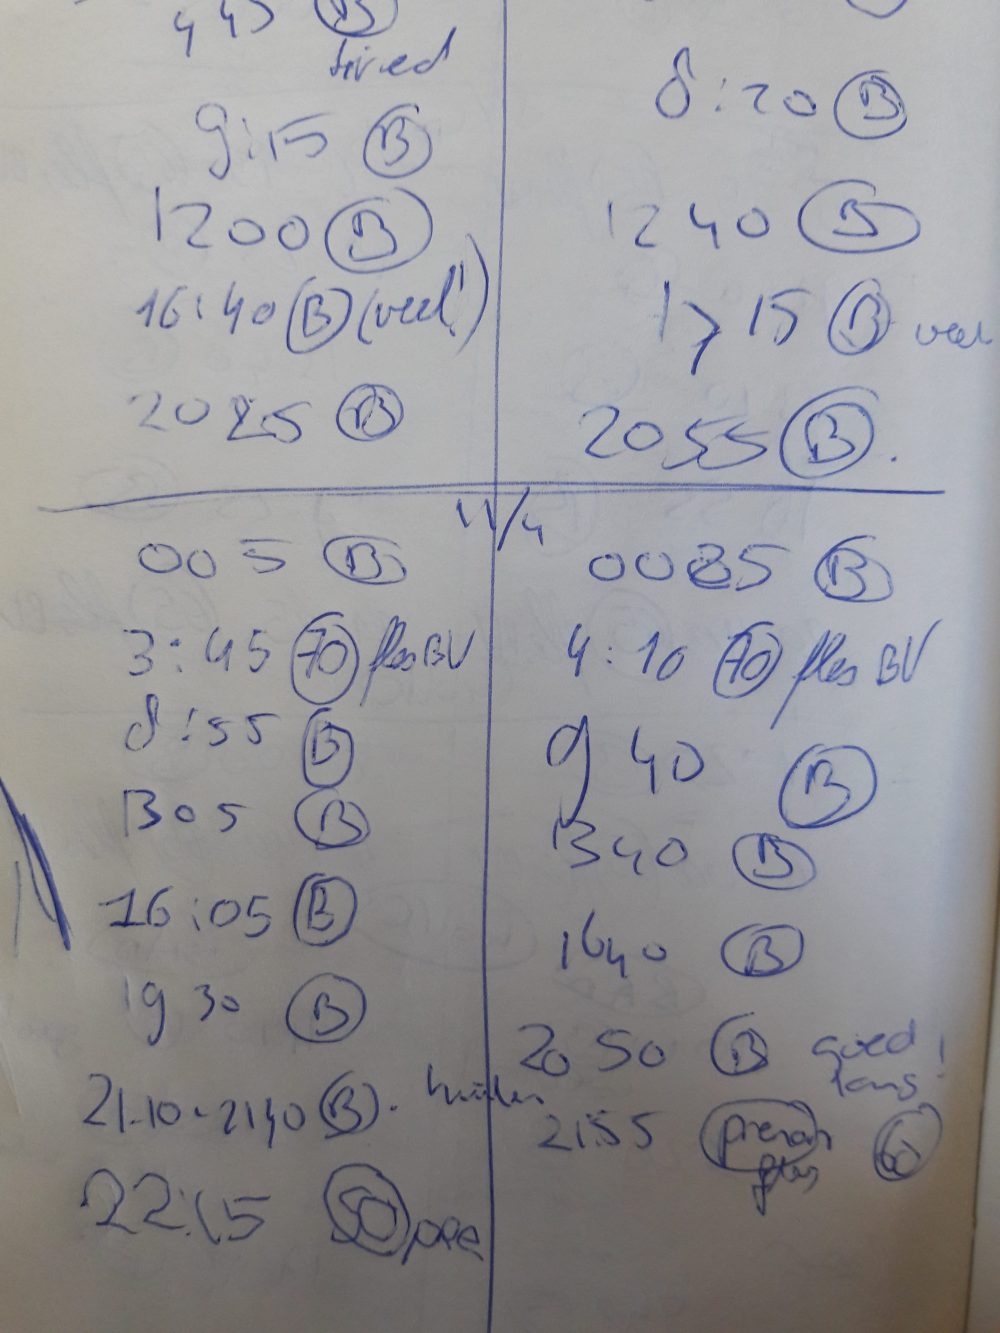 4 45 B
tired
9:15 B
1200 B
16:40 B (veel!)
2025 B
8:20 B
1240 B
17 15 B veel
2055 B.
11/4
005 B
3:45 70 fles BV
8:55 B
1305 B
16:05 B
19 30 B
21.10-2140 B. huilen
22:15 50 pre
0025 B
4:10 70 fles BV
9 40 B
1340 B
1640 B
20 50 B goed
lang!
2155 prenan 60
fles